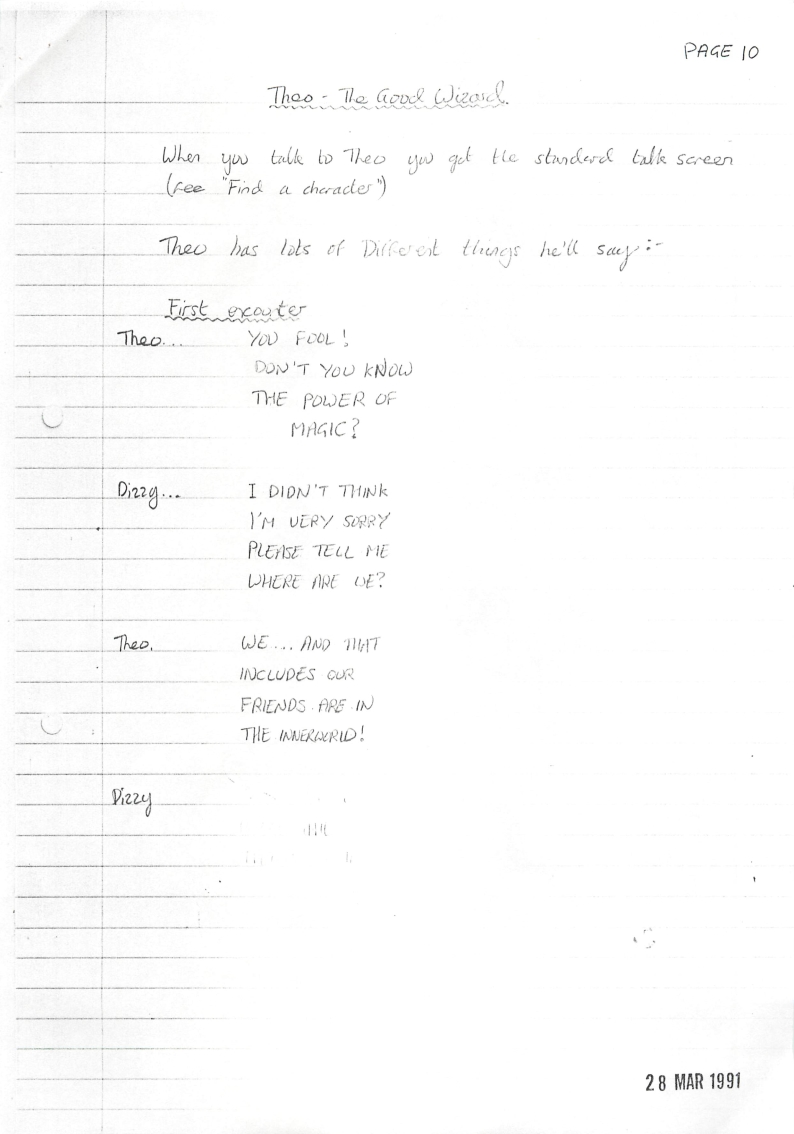 PAGE 10
Theo - The Good Wizard.
When you talk to Theo you get the standard talk screen
(see "Find a character")
Theo has lots of Different things he'll say :-
First excouter
Theo... YOU FOOL!
DON'T YOU KNOW
THE POWER OF
MAGIC?
Dizzy... I DIDN'T THINK
I'M VERY SORRY
PLEASE TELL ME
WHERE ARE WE?
Theo. WE... AND THAT
INCLUDES OUR
FRIENDS ARE IN
THE INNERWORLD!
Dizzy
28 MAR 1991